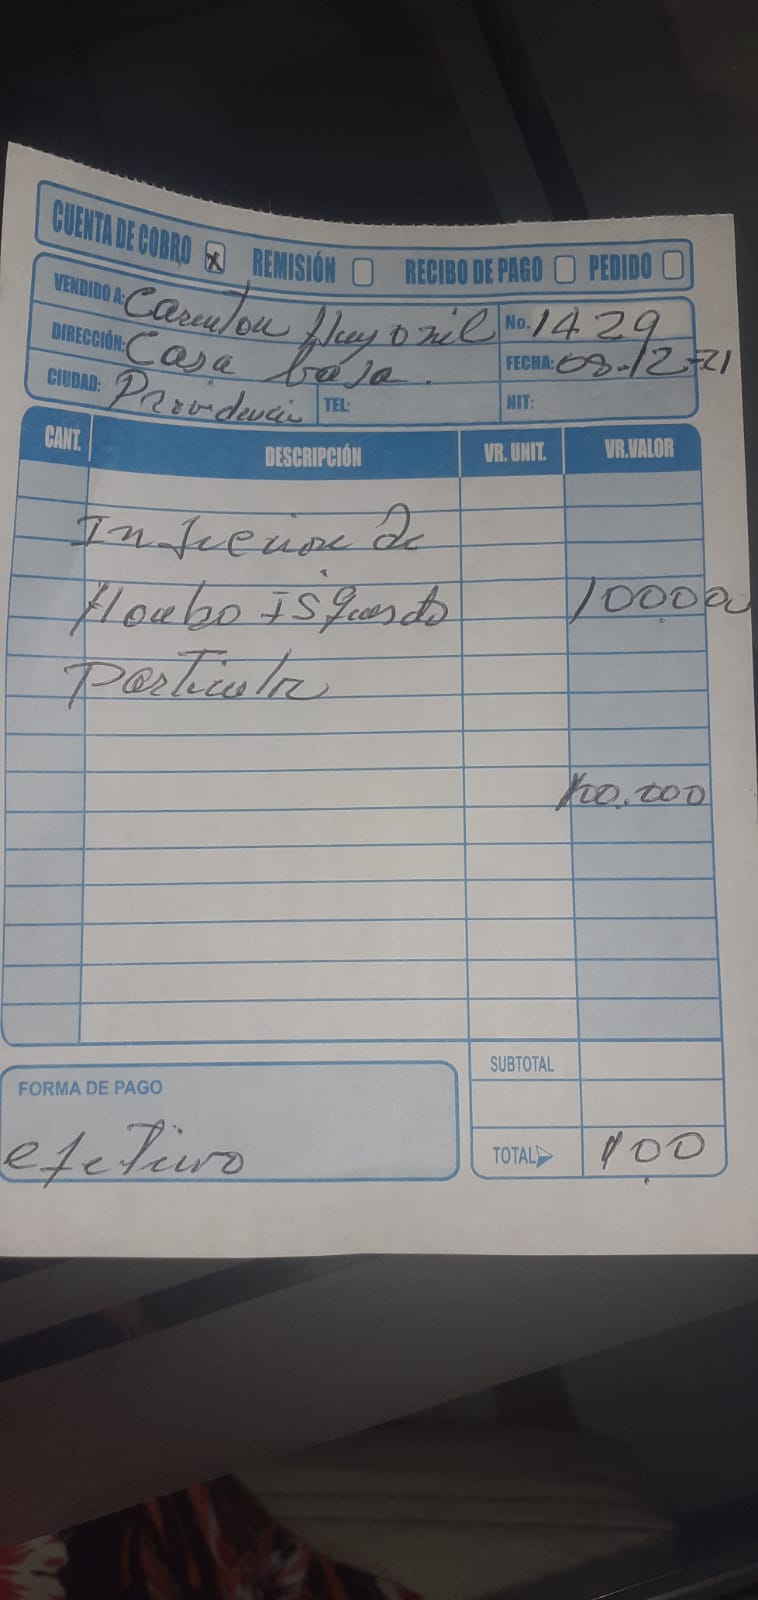 CUENTA DE COBRO x REMISIÓN RECIBO DE PAGO PEDIDO
VENDIDO A: No. 1429
DIRECCIÓN: Casa baja. FECHA: 08-12-21
CIUDAD: Providencia TEL: NIT:
CANT. DESCRIPCIÓN VR. UNIT. VR.VALOR
de
100000
Particular
100.000
SUBTOTAL
FORMA DE PAGO
efetivo TOTAL 100